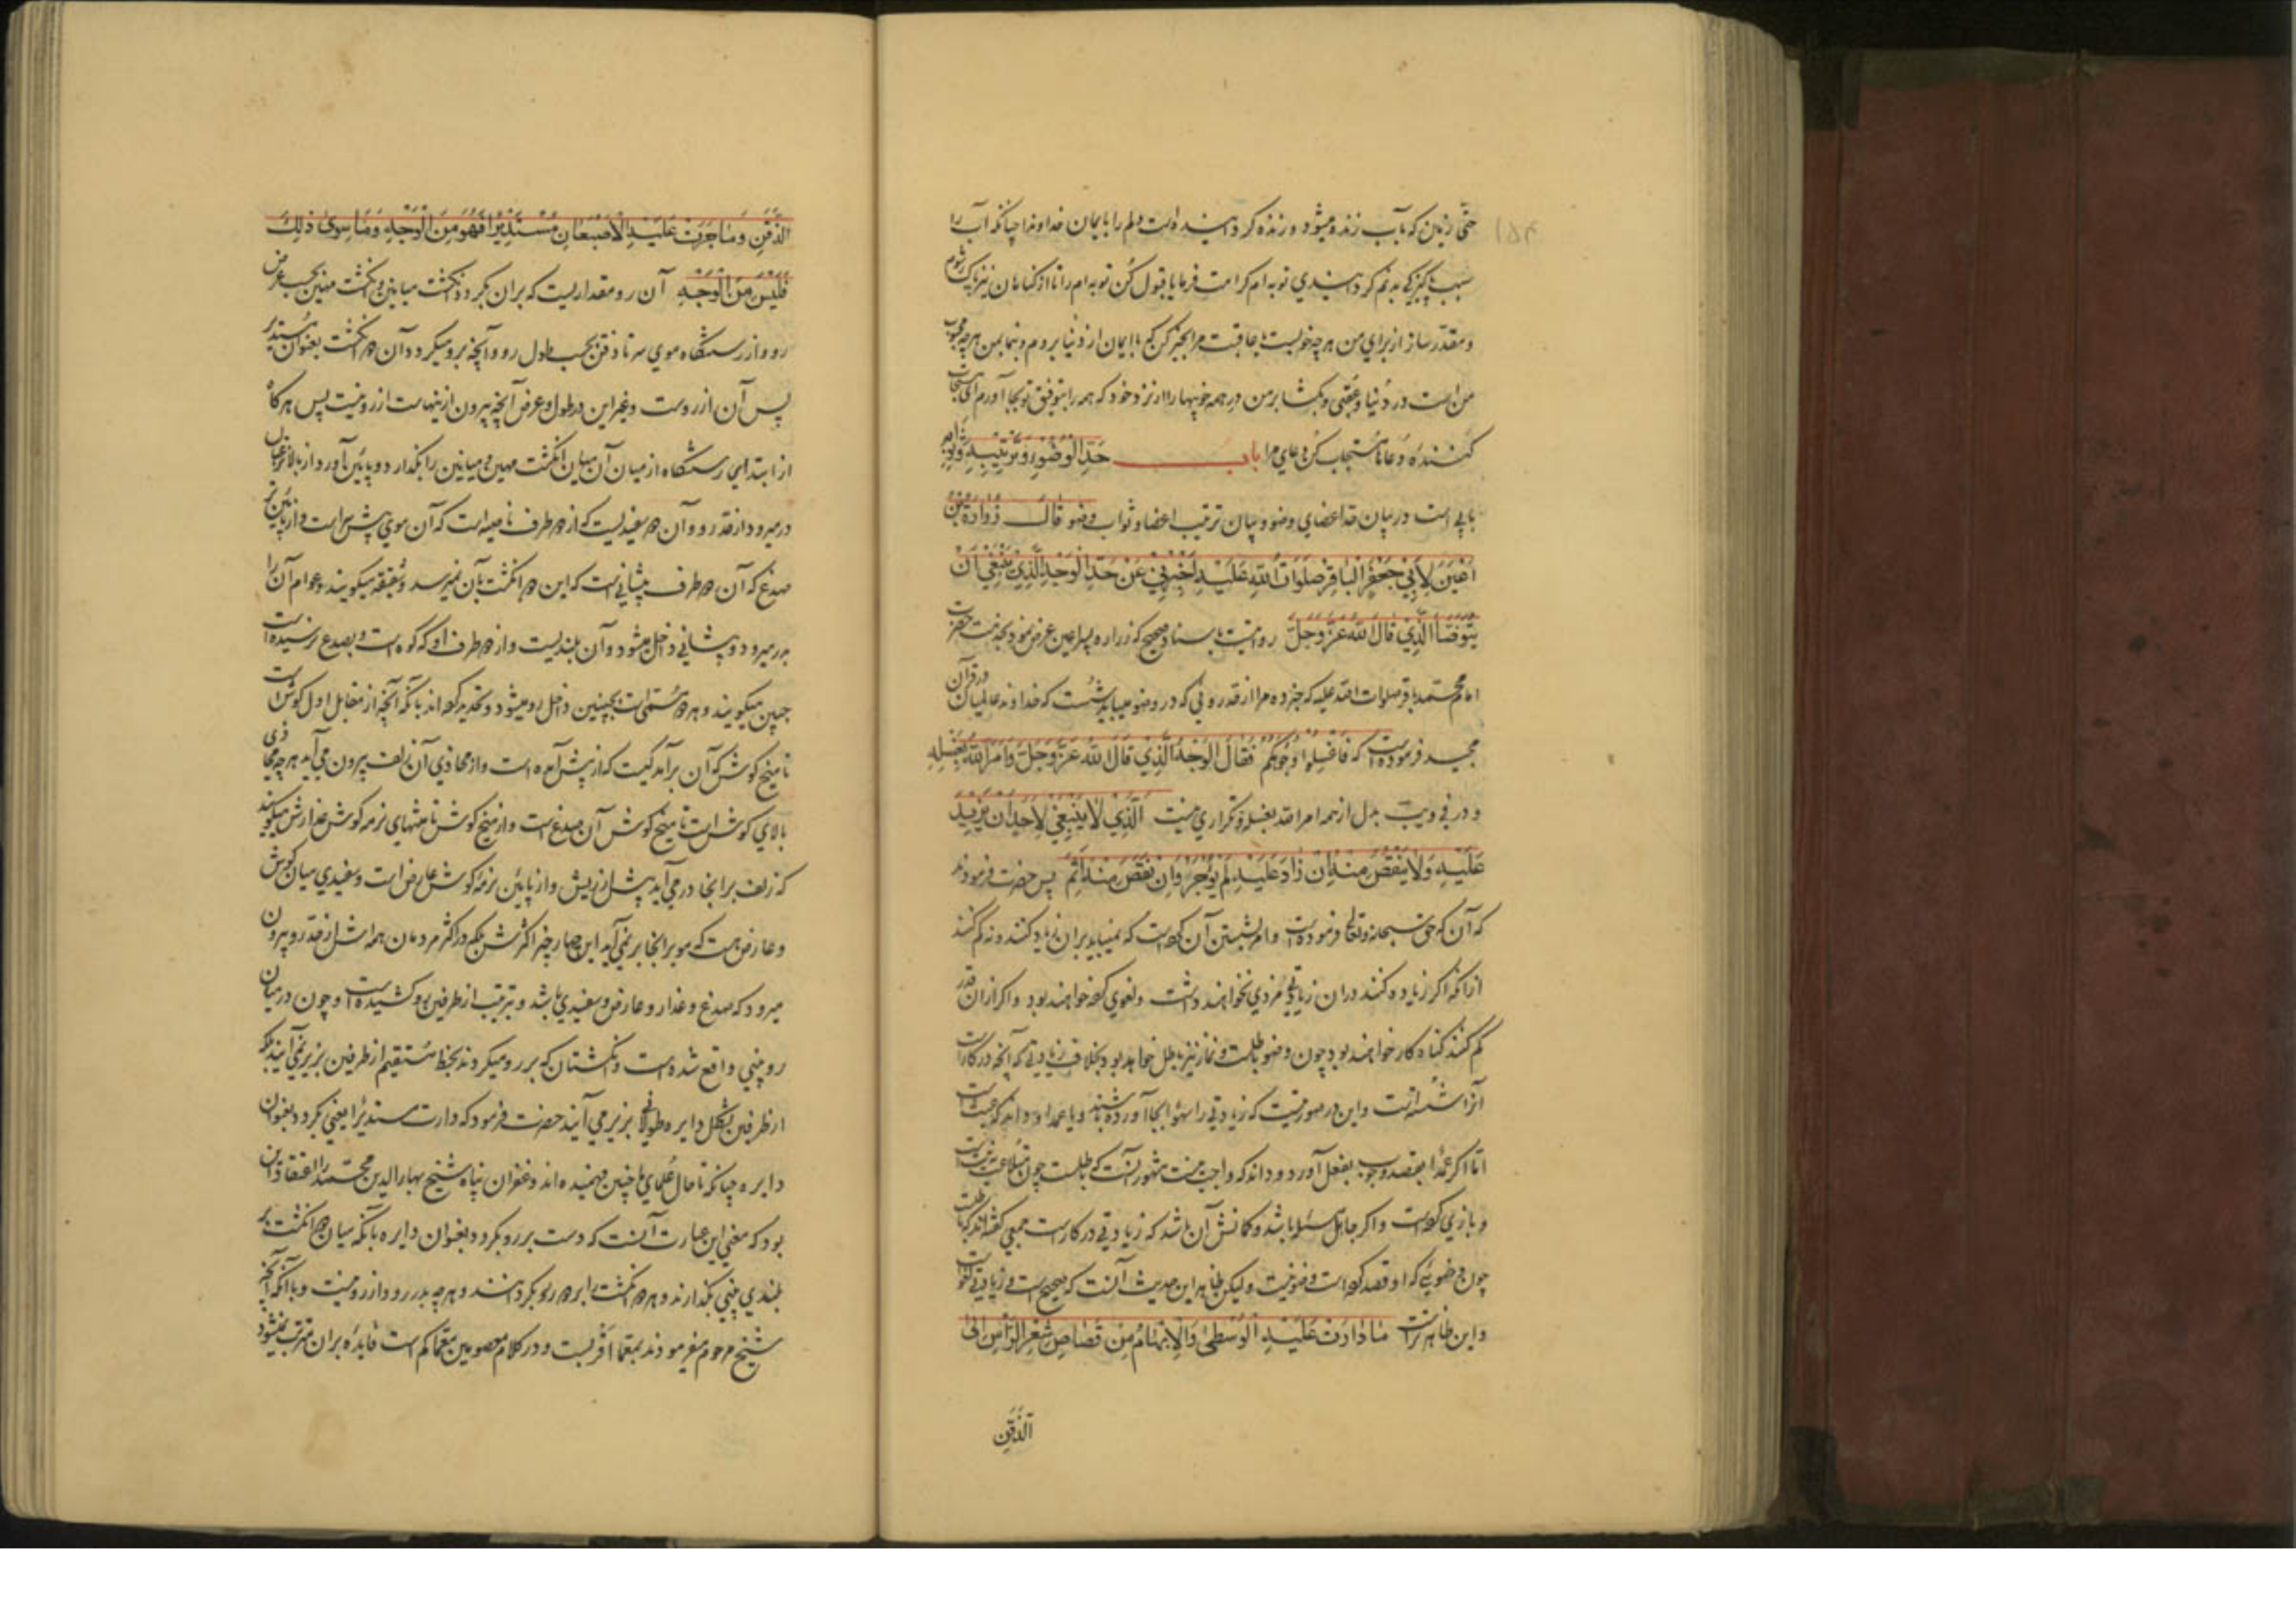 ۱۵۴
حتی زبان که بآب زنده میشود و زنده کردانیده است دلم را بایمان خداوندا چنانکه آب را
سبب پاکیزکی بدنم کردانیدی توبه ام کرامت فرما یا قبول کن توبه ام را تا از کناهان نیز پاک شوم
و مقدر ساز از برای من هر چه خوبیست تا عاقبت مرا بخیر کن که با ایمان از دنیا بروم و بنما بمن هر چه محبوب
من است در دنیا و عقبی و بکشا بر من در همه خوبیها را از نزد خود که همه را بتوفیق تو بجا آورم ای مستجاب
کننده دعاها مستجاب کن دعای مرا باب حَدِّ الْوُضُوءِ وَتَرْتِيبِهِ وَثَوَابِهِ
بابی است در بیان حد اعضای وضو و بیان ترتیب اعضا و ثواب وضو قَالَ زُرَارَةُ بْنُ
اَعْيَنَ لِاَبِي جَعْفَرٍ الْبَاقِرِ صَلَوَاتُ اللهِ عَلَيْهِ اَخْبِرْنِي عَنْ حَدِّ الْوَجْهِ الَّذِي يَنْبَغِي اَنْ
يُتَوَضَّأَ الَّذِي قَالَ اللهُ عَزَّ وَجَلَّ روایتست باسناد صحیح که زراره پسر اعین عرض نمود بخدمت حضرت
امام محمد باقر صلوات الله علیه که خبر ده مرا از قدر روئی که در وضو میباید شست که خداوند عالمیان در قرآن
مجید فرموده است که فَاغْسِلُوا وُجُوهَكُمْ فَقَالَ الْوَجْهُ الَّذِي قَالَ اللهُ عَزَّ وَجَلَّ وَاَمَرَ اللهُ بِغَسْلِهِ
و در فی ویب بدل از همه امر الله بغسله و تکراری نیست اَلَّذِي لَا يَنْبَغِي لِاَحَدٍ اَنْ يَزِيدَ
عَلَيْهِ وَلَا يَنْقُصَ مِنْهُ اِنْ زَادَ عَلَيْهِ لَمْ يُؤْجَرْ وَاِنْ نَقَصَ مِنْهُ اَثِمَ پس حضرت فرمودند
که آن که حق سبحانه و تعالی فرموده است و امر بشستن آن کرده است که نمیباید بر آن زیاد کنند و نه کم کنند
از آنکه اکر زیاده کنند در آن زیادتی مزدی نخواهند داشت و لغوی کرده خواهند بود و اکر از آن قدر
کم کنند کناه کار خواهند بود چون وضو باطلست و نماز نیز باطل خواهد بود بخلاف زیادتی که آنچه در کار است
آنرا شسته است و این در صورتیست که زیادتی را سهوا بجا آورده باشند و یا عمدا و داند که عبث است
اما اکر عمدا بقصد وجوب بفعل آورد و داند که واجب نیست مشهور آنست که باطلست چون
و بازی کرده است و اکر جاهل مسئله باشد و کمانش آن باشد که زیادتی در کار است جمعی کفته اند که باطلست
چون وضوئی که او قصد کرده است وضو نیست و لیکن ظاهر این حدیث آنست که صحیح است و زیادتی لغو است
و این ظاهرتر است مَا دَارَتْ عَلَيْهِ الْوُسْطَى وَالْاِبْهَامُ مِنْ قُصَاصِ شَعْرِ الرَّأْسِ اِلَى
اَلذَّقَنِ
الذَّقَنِ وَمَا جَرَتْ عَلَيْهِ الْاِصْبَعَانِ مُسْتَدِيرًا فَهُوَ مِنَ الْوَجْهِ وَمَا سِوَى ذٰلِكَ
فَلَيْسَ مِنَ الْوَجْهِ آن رو مقداریست که بر آن بکردد انکشت میانین و انکشت مهین بحسب عرض
رو و از رستنکاه موی سر تا ذقن بحسب طول رو و آنچه برو میکردد آن دو انکشت بعنوان مستدیر
پس آن از رو است و غیر این در طول و عرض آنچه بیرون از ینهاست از رو نیست پس هر کاه
از ابتدای رستنکاه از میان آن میان انکشت مهین و میانین را بکذارد و بپائین آورد از بالا نزعتان
در میرود از قدر رو و آن دو سفیدیست که از دو طرف ناصیه است که آن موی پیش سر است و از پائین نیز
صدغ که آن دو طرف پیشانی است که این دو انکشت بآن نمیرسد و شقیقه میکویند و عوام آن را
بدر میرود و پیشانی داخل میشود و آن بلندیست و از دو طرف او که کو است و بصدغ نرسیده است
جبین میکویند و هر دو مسمی است بجبینین داخل رو میشود و تحدید کرده اند بآنکه آنچه از مقابل اول کوش است
تا میخ کوش که آن برآمدکیست که از پیش آمده است و از محاذی آن زلف بیرون می آید هر چه محاذی
بالای کوش است تا میخ کوش آن صدغ است و از میخ کوش تا منتهای نرمه کوش عذارش میکویند
که زلف بر آنجا در می آید پیش از ریش و از پائین نرمه کوش عارض است و سفیدی میان کوش
و عارض هست که مو بر آنجا بر نمی آید این چهار چیز اکثرش بلکه در اکثر مردمان همه اش از قدر رو بیرون
میرود که صدغ و عذار و عارض و سفیدی باشد و بترتیب از طرفین رو کشیده است و چون در میان
رو بینی واقع شده است و انکشتان که بر رو میکردند بخط مستقیم از طرفین بزیر نمی آیند بلکه
از طرفین بشکل دایره طولانی بزیر می آیند حضرت فرمود که دارت مستدیرا یعنی بکردد بعنوان
دایره چنانکه تا حال علمای ما چنین فهمیده اند و غفران پناه شیخ بهاء الدین محمد را اعتقاد این
بود که معنی این عبارت آنست که دست بر رو بکردد بعنوان دایره بآنکه میان دو انکشت بر
بلندی بینی بکذارند و هر دو انکشت را بر دور رو بکردانند و هر چه بدر رود از رو نیست و با آنکه آنچه
شیخ مرحوم میفرمودند بمعما اقربست و در کلام معصومین معما کم است فایده بر آن مترتب نمیشود